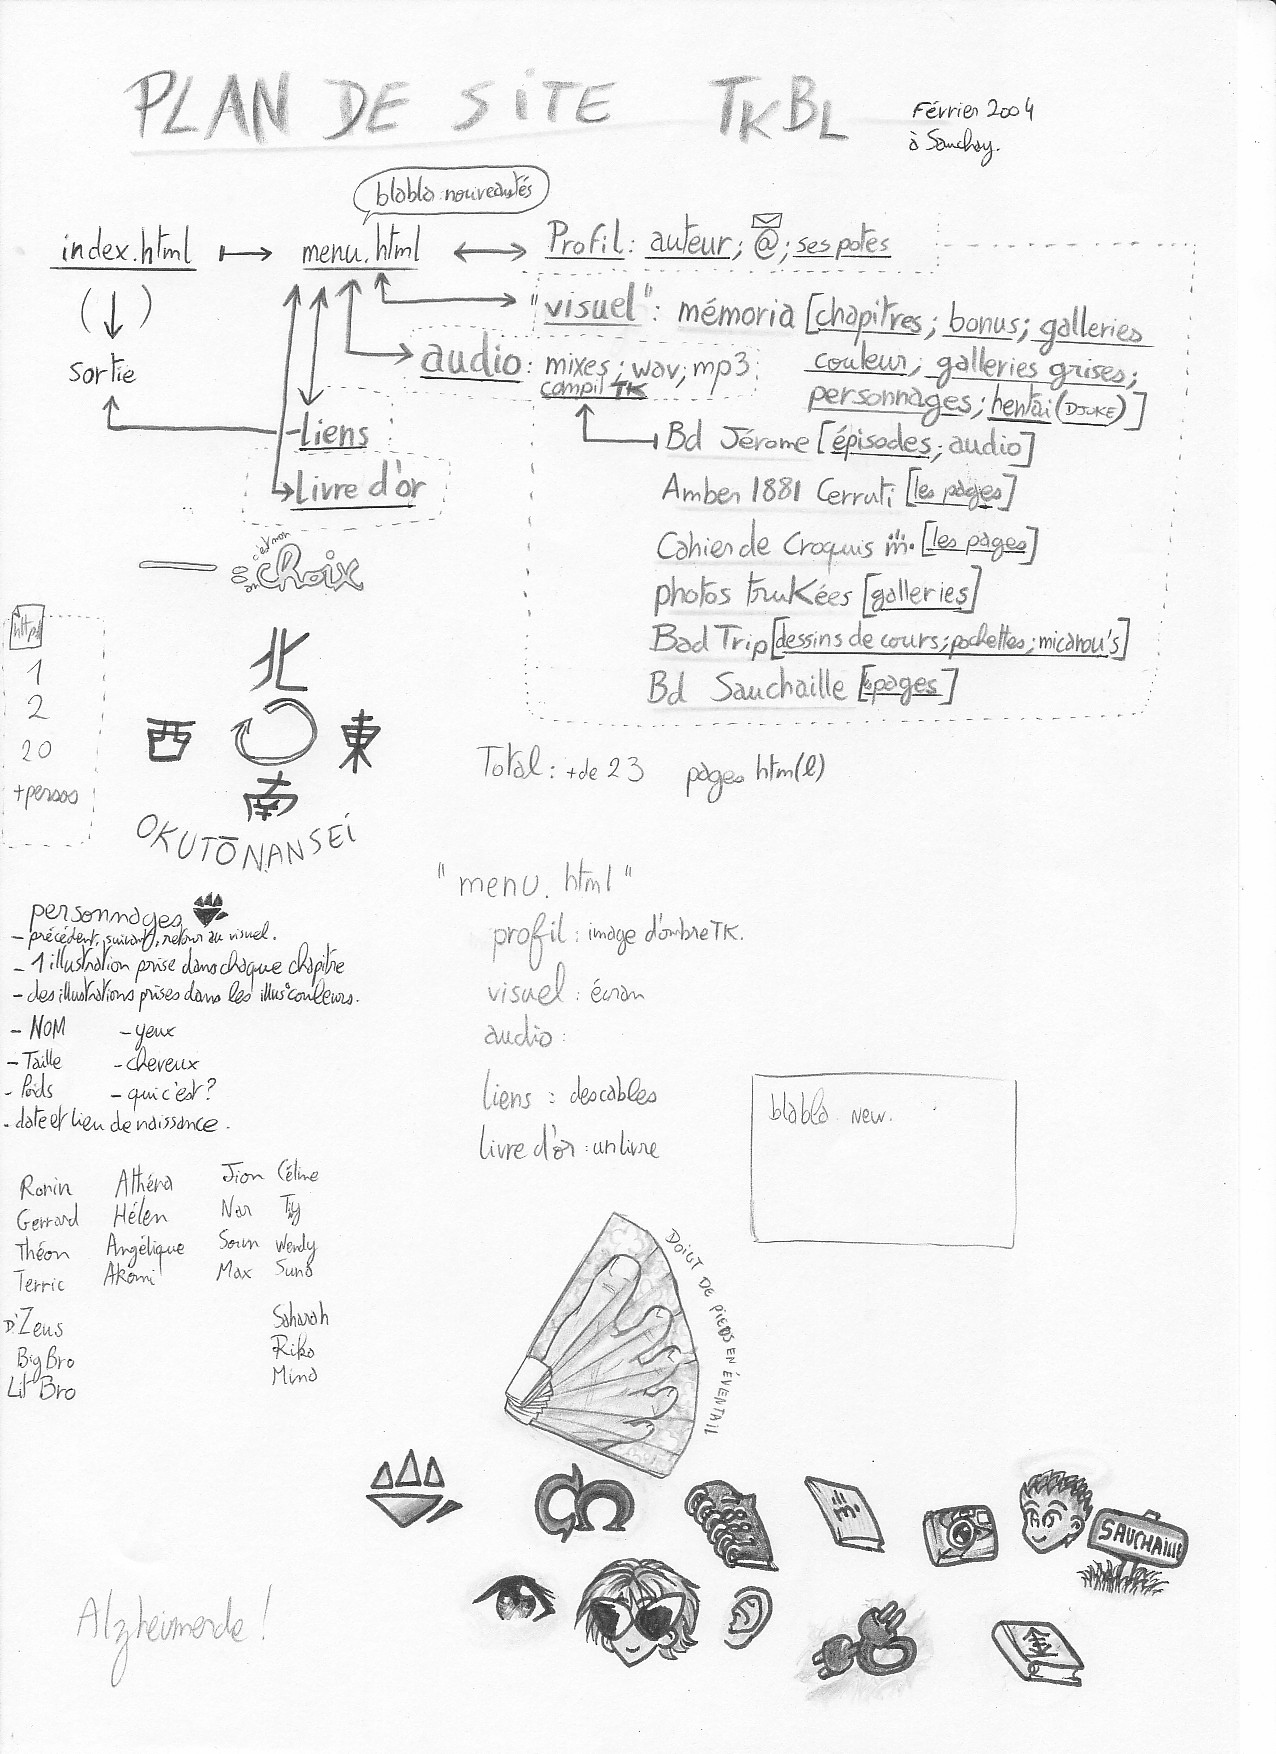 PLAN DE SITE TKBL
Février 2004
à Sauchay.
blabla nouveautés
index.html
menu.html
Profil : auteur ; @ ; ses potes
(↓)
sortie
"visuel" : mémoria [chapitres ; bonus ; galleries
couleur ; galleries grises ;
personnages ; hentai (DJUKE)]
audio : mixes ; wav ; mp3
compil TK
-liens
Livre d'or
Bd Jérome [épisodes ; audio]
Amber 1881 Cerruti [les pages]
Cahier de Croquis [les pages]
photos truKées [galleries]
Bad Trip [dessins de cours ; pochettes ; micarou's]
Bd Sauchaille [pages]
c'est mon
choix
http
1
2
20
+persos
北
西
東
南
OKUTŌNANSEI
Total : + de 23 pages htm(l)
"menu.html"
profil : image d'ombre TK.
visuel : écran
audio :
liens : des cables
livre d'or : un livre
blabla new.
personnages
- précédent, suivant, retour au visuel.
- 1 illustration prise dans chaque chapitre
- des illustrations prises dans les illus° couleurs.
- NOM - yeux
- Taille - cheveux
- Poids - qui c'est ?
- date et lieu de naissance.
Ronin Athéna Jion Céline
Gerrard Hélen Nar Tiy
Théon Angélique Soun Wendy
Terric Akemi Max Suno
D'Zeus Saharah
Big Bro Riko
Lit Bro Mina
DOIGT DE PIEDS EN ÉVENTAIL
SAUCHAILLE
金
Alzheimerde !